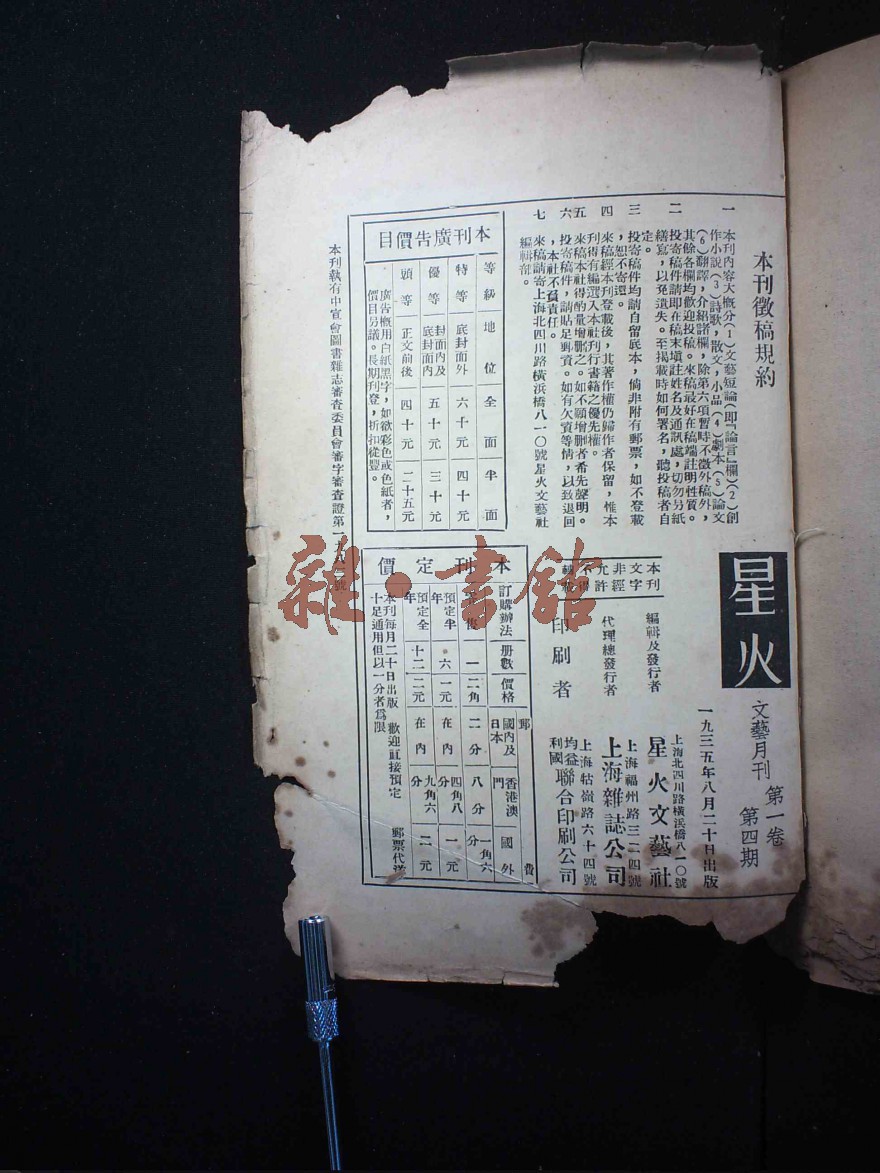 本刊徵稿規約
一 本刊內容大概分(1)文藝短論(即『論言』欄)(2)創
作小說(3)詩歌,散文,小品(4)劇本(5)論文
(6)翻譯,介紹諸欄,除第六項暫時不徵外稿外,
其餘各欄均歡迎投稿。來稿最好在稿端註明性質。
二 投寄稿件請即在稿末塡註姓名及通訊處,切勿另紙
繕寫,以免遺失。至揭載時如何署名,聽投稿者自
定。
三 投寄稿件均請自留底本,倘非附有郵票,如不登載
,恕不寄還。
四 來稿經本刊登載後,其著作權仍歸作者保留,惟本
刊得有編選入本社刊行書籍之優先權。
五 來稿本社得酌量增删之。如不願增删者希先聲明。
六 投寄稿件,請貼足郵資。如有欠資等情,以致退回
,本社不負責任。
七 來稿請寄上海北四川路橫浜橋八一〇號星火文藝社
編輯部。
本刊廣告價目
等級 地位 全面 半面
特等 底封面外 六十元 四十元
優等 封面內及底封面內 五十元 三十元
頭等 正文前後 四十元 二十五元
廣告槪用白紙黑字,如欲彩色或色紙者,
價目另議。長期刊登,折扣從豐。
本刊執有中宣會圖書雜志審查委員會審字審查證第一
號
星火
文藝月刊 第一卷
第四期
一九三五年八月二十日出版
上海北四川路橫浜橋八一〇號
編輯及發行者 星火文藝社
上海福州路三二四號
代理總發行者 上海雜誌公司
上海牯嶺路六十四號
印刷者 均益利國聯合印刷公司
本刊
文字
非經
允許
不得
轉載
本刊定價
訂購辦法 册數 價格 郵費
國內及日本 香港澳門 國外
一 二角 二分 八分 一角六分
預定半年 六 一元 在內 四角八分 一元
預定全年 十二 二元 在內 九角六分 二元
本刊每月二十日出版 歡迎直接預定 郵票代洋
十足通用但以一分者爲限
雜·書館